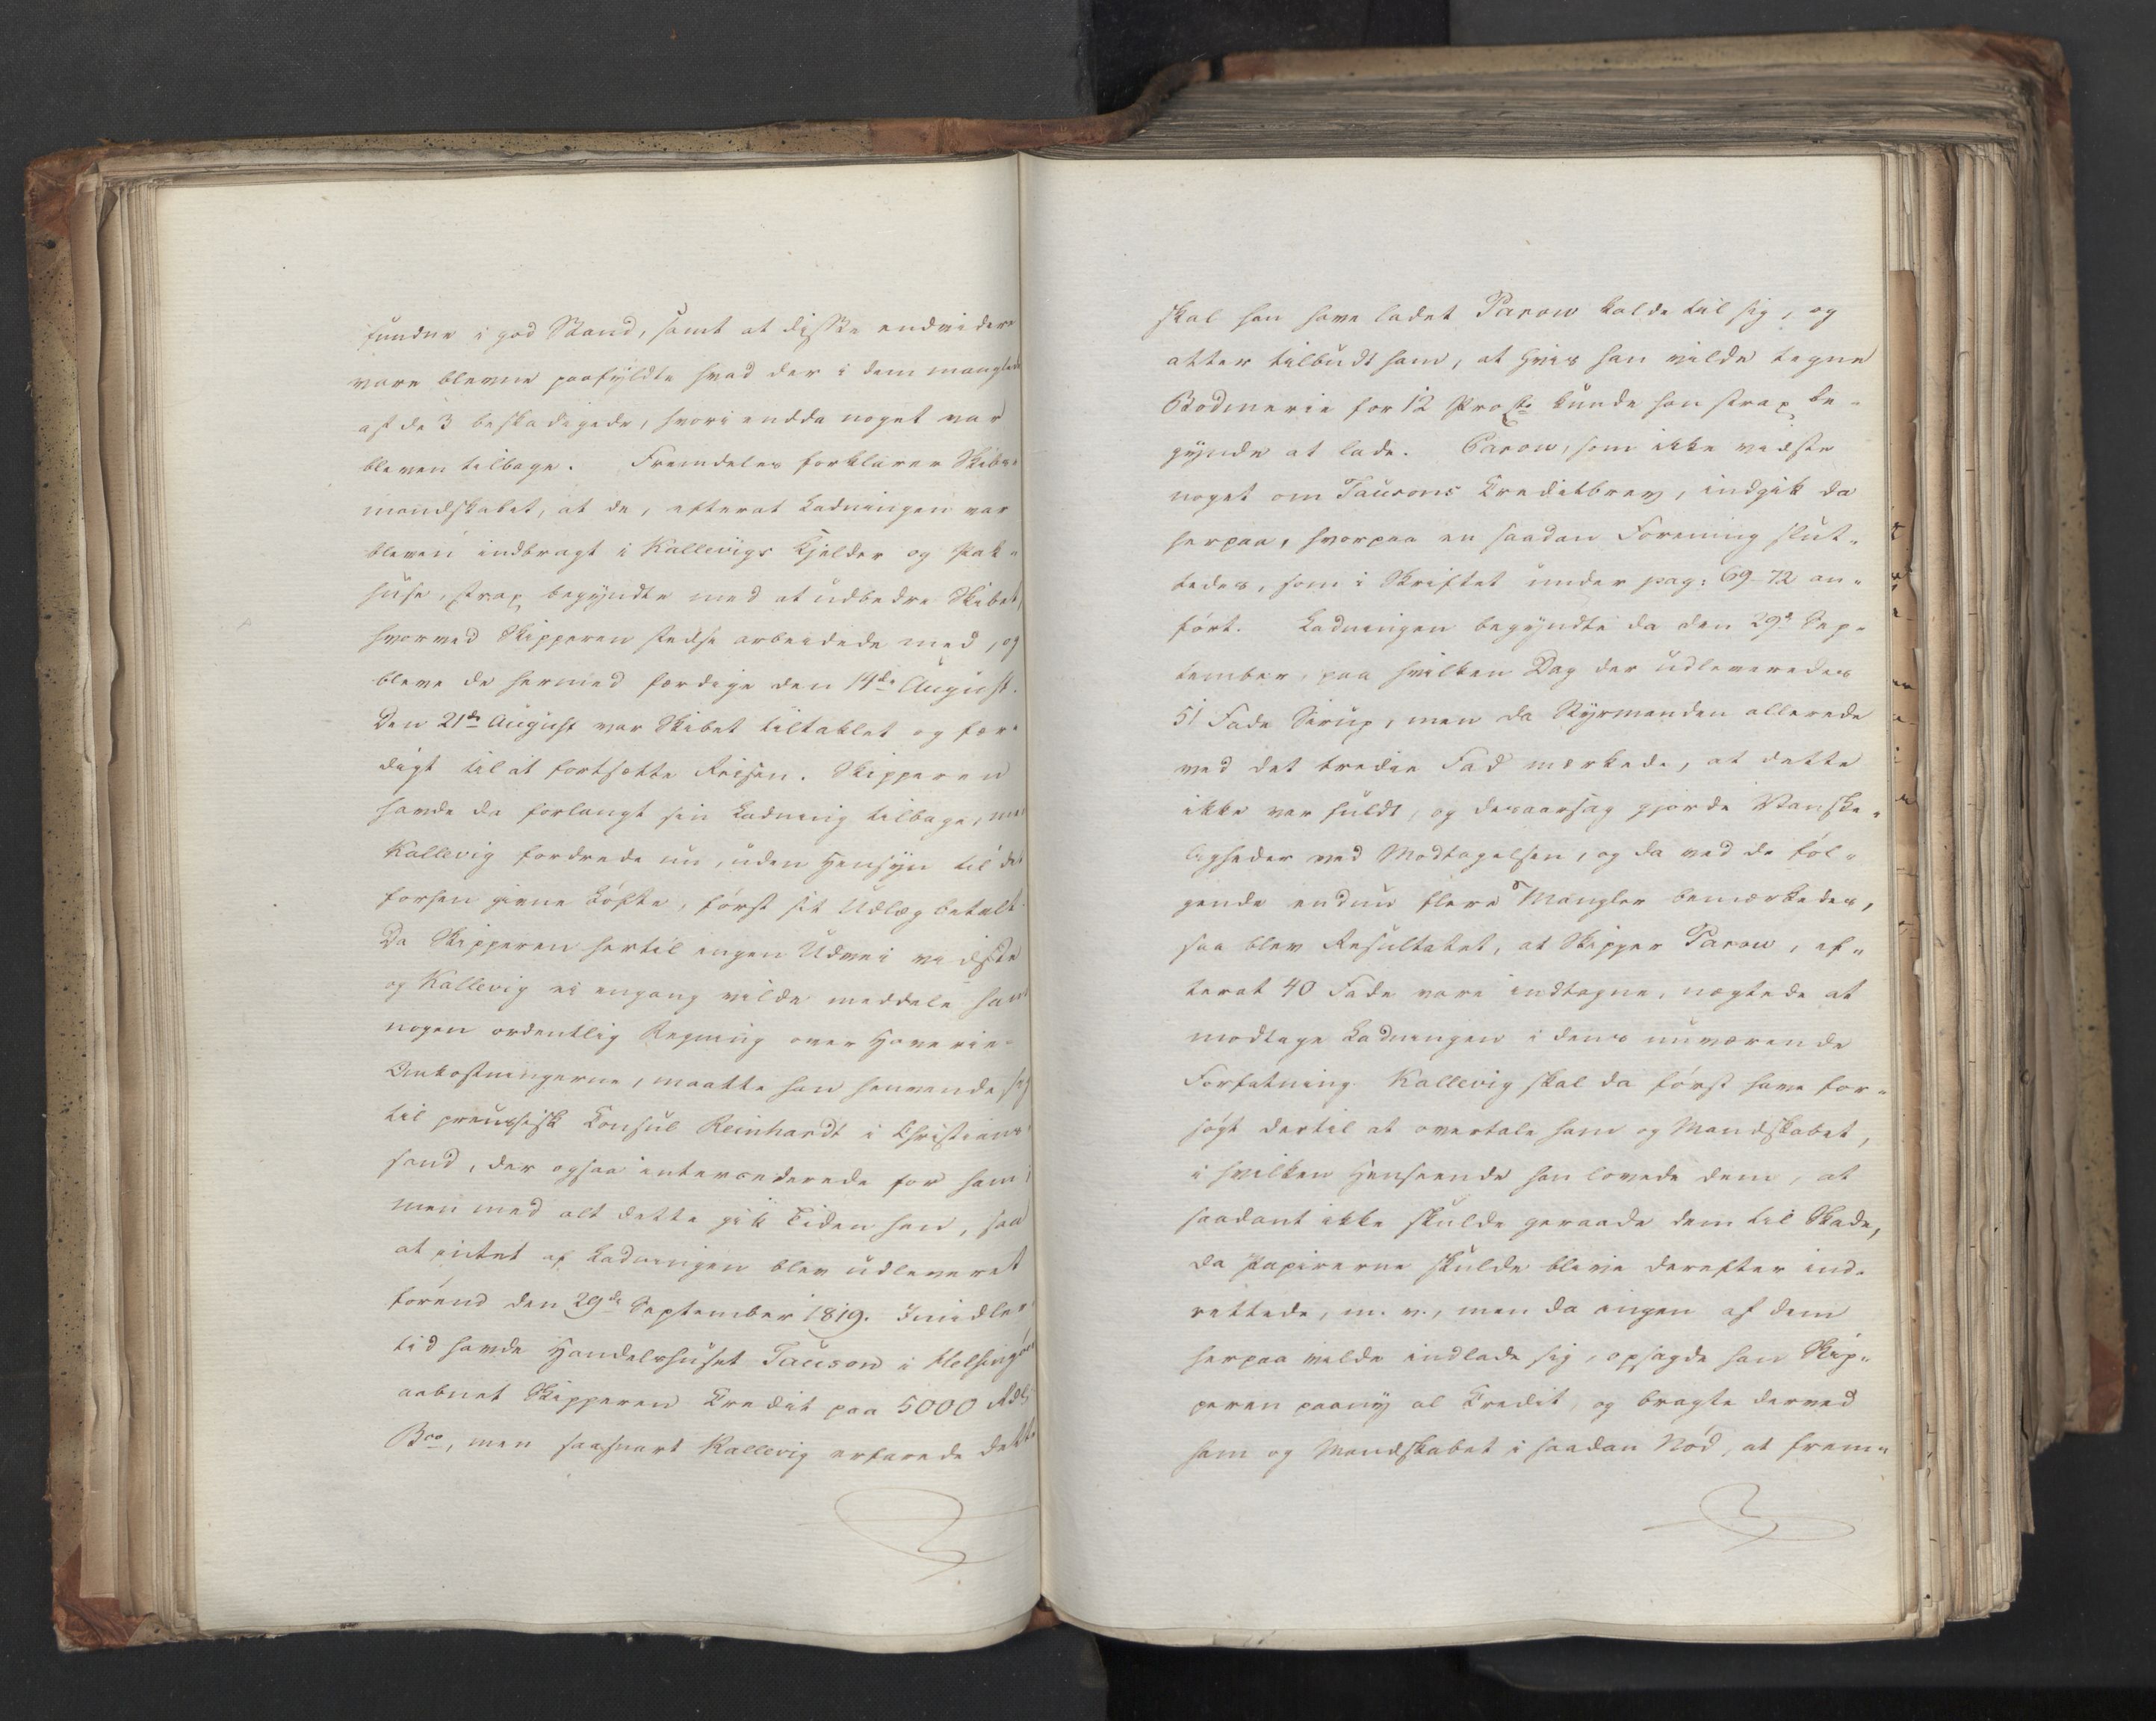 fundne i god Stand, samt at disse endvidere
vare blevne paafyldte hvad der i dem manglede
af de 3 beskadigede, hvori endda noget var
bleven tilbage. Fremdeles forklarer Skibs-
mandskabet, at de, efterat Ladningen var
bleven indbragt i Kallevigs Kjelder og Pak-
huse, strax begyndte med at udbedre Skibet,
hvorved Skipperen stedse arbeidede med, og
bleve de hermed færdige den 14de August.
Den 21de August var Skibet tiltaklet og fær-
digt til at fortsætte Reisen. Skipperen
havde da forlangt sin Ladning tilbage, men
Kallevig fordrede nu, uden Hensyn til det
forhen givne Löfte, först sit Udlæg betalt.
Da Skipperen hertil ingen Udvei vidste
og Kallevig ei engang vilde meddele ham
nogen ordentlig Regning over Haverie-
Omkostningerne, maatte han henvende sig
til preussisk Consul Reinhardt i Christian-
sand, der ogsaa intercederede for ham;
men med alt dette gik Tiden hen, saa
at intet af Ladningen blev udleveret
förend den 29de September 1819. Imidler-
tid havde Handelshuset Tauson i Helsingör
aabnet Skipperen Credit paa 5000 Rdl
Bco, men saasnart Kallevig erfarede dette
skal han have ladet Parow kalde til sig, og
atter tilbudt ham, at hvis han vilde tegne
Bodmerie for 12 Procto kunde han strax be-
gynde at lade. Parow, som ikke vidste
noget om Tausons Creditbrev, indgik da
herpaa, hvorpaa en saadan Forening slut-
tedes, som i Skriftet under pag: 69-72 an-
fört. Ladningen begyndte da den 29de Sep-
tember, paa hvilken Dag der udleveredes
51 Fade Sirup, men da Styrmanden allerede
ved det tredie Fad mærkede, at dette
ikke var fuldt, og desaarsag gjorde Vanske-
ligheder ved Modtagelsen, og da ved de föl-
gende endnu flere Mangler bemærkedes,
saa blev Resultatet, at Skipper Parow, ef-
terat 40 Fade vare indtagne, nægtede at
modtage Ladningen i dens nuværende
Forfatning. Kallevig skal da först have for-
sögt dertil at overtale ham og Mandskabet,
i hvilken Henseende han lovede dem, at
saadant ikke skulde geraade dem til Skade,
da Papirerne skulde blive derefter ind-
rettede, m. v., men da ingen af dem
herpaa vilde indlade sig, opsagde han Skip-
peren paany al Credit, og bragte derved
ham og Mandskabet i saadan Nöd, at frem-